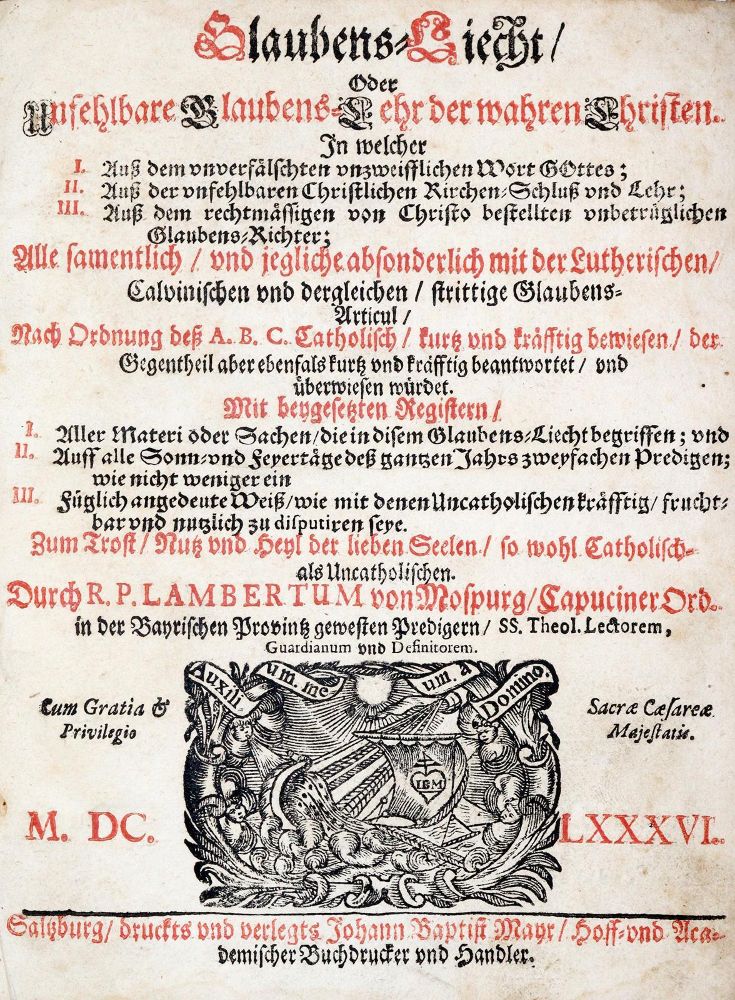 Glaubens-Liecht /
Oder
Unfehlbare Glaubens-Lehr der wahren Christen.
In welcher
I. Auß dem unverfälschten unzweifflichen Wort GOttes;
II. Auß der unfehlbaren Christlichen Kirchen-Schluß und Lehr;
III. Auß dem rechtmässigen von Christo bestellten unbetrüglichen
Glaubens-Richter;
Alle samentlich / vnd jegliche absonderlich mit der Lutherischen /
Calvinischen vnd dergleichen / strittige Glaubens-
Articul /
Nach Ordnung deß A. B. C. Catholisch / kurtz vnd kräfftig bewiesen / der
Gegentheil aber ebenfals kurtz vnd kräfftig beantwortet / vnd
überwiesen würdet.
Mit beygesetzten Registern /
I. Aller Materi oder Sachen / die in disem Glaubens-Liecht begriffen; vnd
II. Auff alle Sonn- vnd Feyertäge deß gantzen Jahrs zweyfachen Predigen;
wie nicht weniger ein
III. Füglich angedeute Weiß / wie mit denen Uncatholischen kräfftig / frucht-
bar vnd nutzlich zu disputiren seye.
Zum Trost / Nutz vnd Heyl der lieben Seelen / so wohl Catholisch-
als Uncatholischen.
Durch R. P. LAMBERTUM von Mospurg / Capuciner Ord.
in der Bayrischen Provintz gewesten Predigern / SS. Theol. Lectorem,
Guardianum vnd Definitorem.
Auxilium meum a Domino.
IBM
Cum Gratia & Privilegio
Sacræ Cæsareæ Majestatis.
M. DC. LXXXVI.
Saltzburg / druckts vnd verlegts Johann Baptist Mayr / Hoff- vnd Aca-
demischer Buchdrucker vnd Handler.